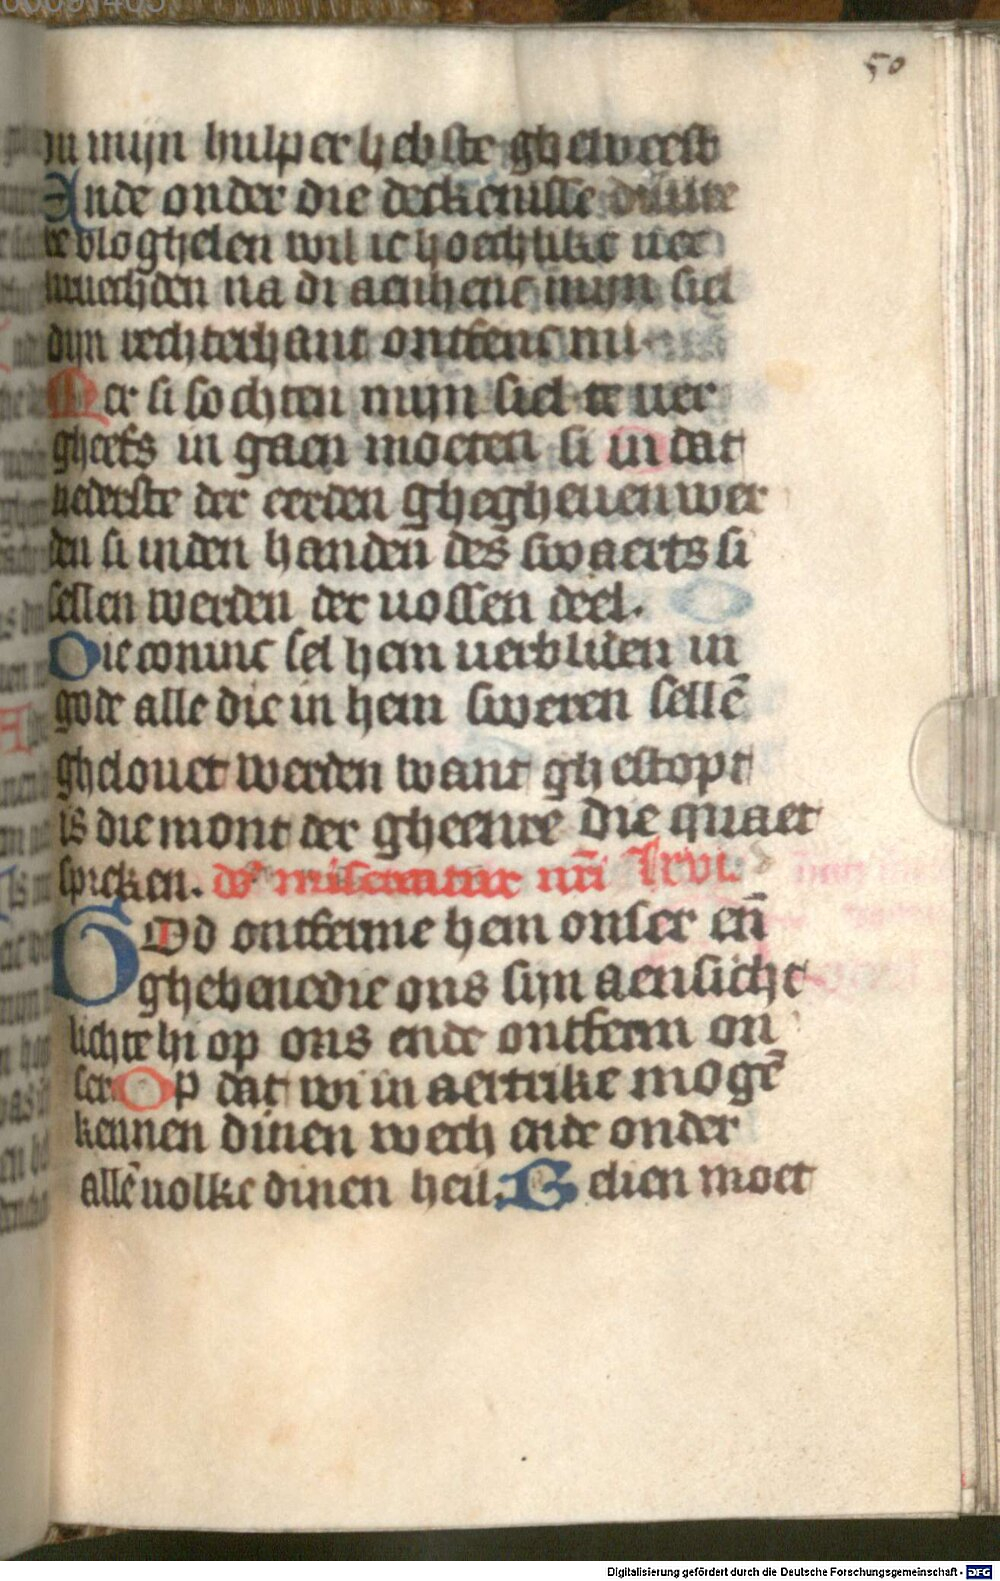 50
mijn hulper hebste gheweest
Ende onder die deckenisse dinre
vloghelen wil ic hoechlike ver
vruechden na di aenhenc mijn siel
dijn rechterhant ontfenc mi
Mer si sochten mijn siel te uer
gheefs in gaen moeten si in dat
nederste der eerden ghegheuen wer
den si inden handen des swaerts si
sellen werden der uossen deel.
Die coninc sel hem uerbliden in
gode alle die in hem sweren sellē
ghelouet werden want ghestopt
is die mont der gheenre die quaet
spreken. ds misereatur nrī lxvi.
God ontferme hem onser eñ
ghebenedie ons sijn aensicht
lichte hi op ons ende ontferm on
ser Op dat wi in aertrike mogē
kennen dinen wech ende onder
allē uolke dinen heil. Belien moet
Digitalisierung gefördert durch die Deutsche Forschungsgemeinschaft - DFG